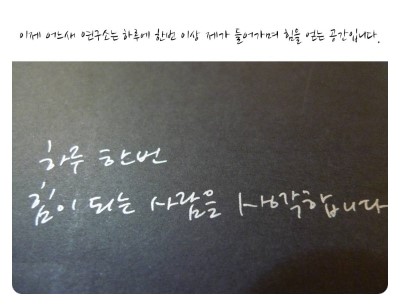 이제 어느새 연구소는 하루에 한번 이상 제가 들어가며 힘을 얻는 공간입니다.
하루 한번
힘이 되는 사람을 생각합니다